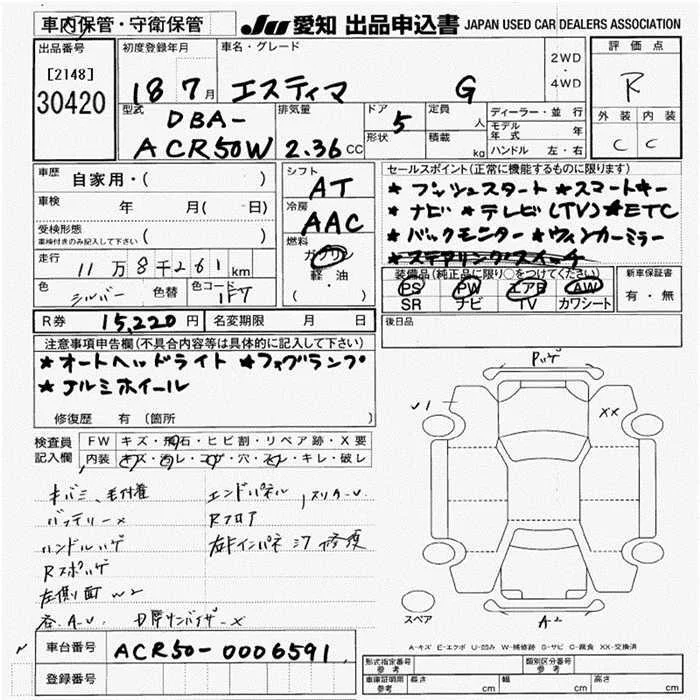 車内保管・守衛保管 JU 愛知 出品申込書 JAPAN USED CAR DEALERS ASSOCIATION
出品番号 初度登録年月 車名・グレード 2WD ・ 4WD 評価点
[2148] 18 7月 エスティマ G R
30420 型式 DBA- 排気量 ドア 5 定員 人 ディーラー・並行 外装 内装
ACR50W 2.36 CC 形状 積載 kg モデル年式 年 C C
ハンドル 左・右
車歴 自家用・( ) シフト AT セールスポイント(正常に機能するものに限ります)
車検 年 月( 日) 冷房 AAC ★プッシュスタート ★スマートキー
★ナビ ★テレビ(TV) ★ETC
受検形態 車検付きのみ記入して下さい ( ) 燃料 ガソリン ★バックモニター ★ウィンカーミラー
走行 11万8千261km 軽・油 ★ステアリングスイッチ
( ) 装備品(純正品に限り○をつけてください) 新車保証書
色 シルバー 色替 色コード 1F7 PS PW エアB AW 有・無
SR ナビ TV カワシート
R券 15,220円 名変期限 月 日 後日品
注意事項申告欄(不具合内容等は具体的に記入して下さい)
★オートヘッドライト ★フォグランプ
★アルミホイール
修復歴 有 〔箇所 〕
Pハゲ
√1 XX
検査員記入欄 FW キズ・飛石・ヒビ割・リペア跡・X要
内装 キズ・汚レ・コゲ・穴・スレ・キレ・破レ
キバミ、毛付着 エンドパネル
バッテリーX Rフロア
ハンドルハゲ 修復
Rスポハゲ
左側面 W2
A-U
A2
スペア
A-キズ E-エクボ U-凹み W-補修跡 S-サビ C-腐食 XX-交換済
車台番号 ACR50-0006591
登録番号
形式指定番号 参考 類別区分番号 参考
車庫証明用 参考 長さ cm 幅 cm 高さ cm